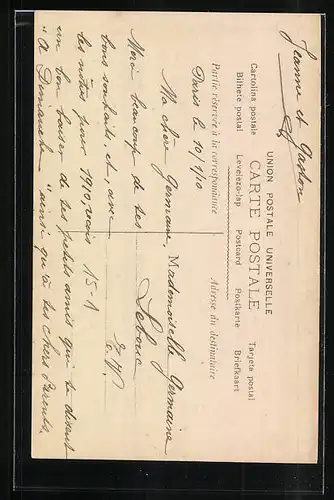 Jeanne et Gaston
UNION POSTALE UNIVERSELLE
CARTE POSTALE
Cartolina postale Tarjeta postal
Bilhete postal Levelezo-lap Postcard Postkarte Briefkaart
Partie réservée à la correspondance
Adresse du destinataire
Paris le 10/1/10
Ma chère Germaine,
Merci beaucoup de tes
bons souhaits, et avec
les nôtres pour 1910, reçois
un bon baiser de tes petits amis qui te disent
"à Dimanche" ainsi qu'à tes chers Parents.
Mademoiselle Germaine
15-1